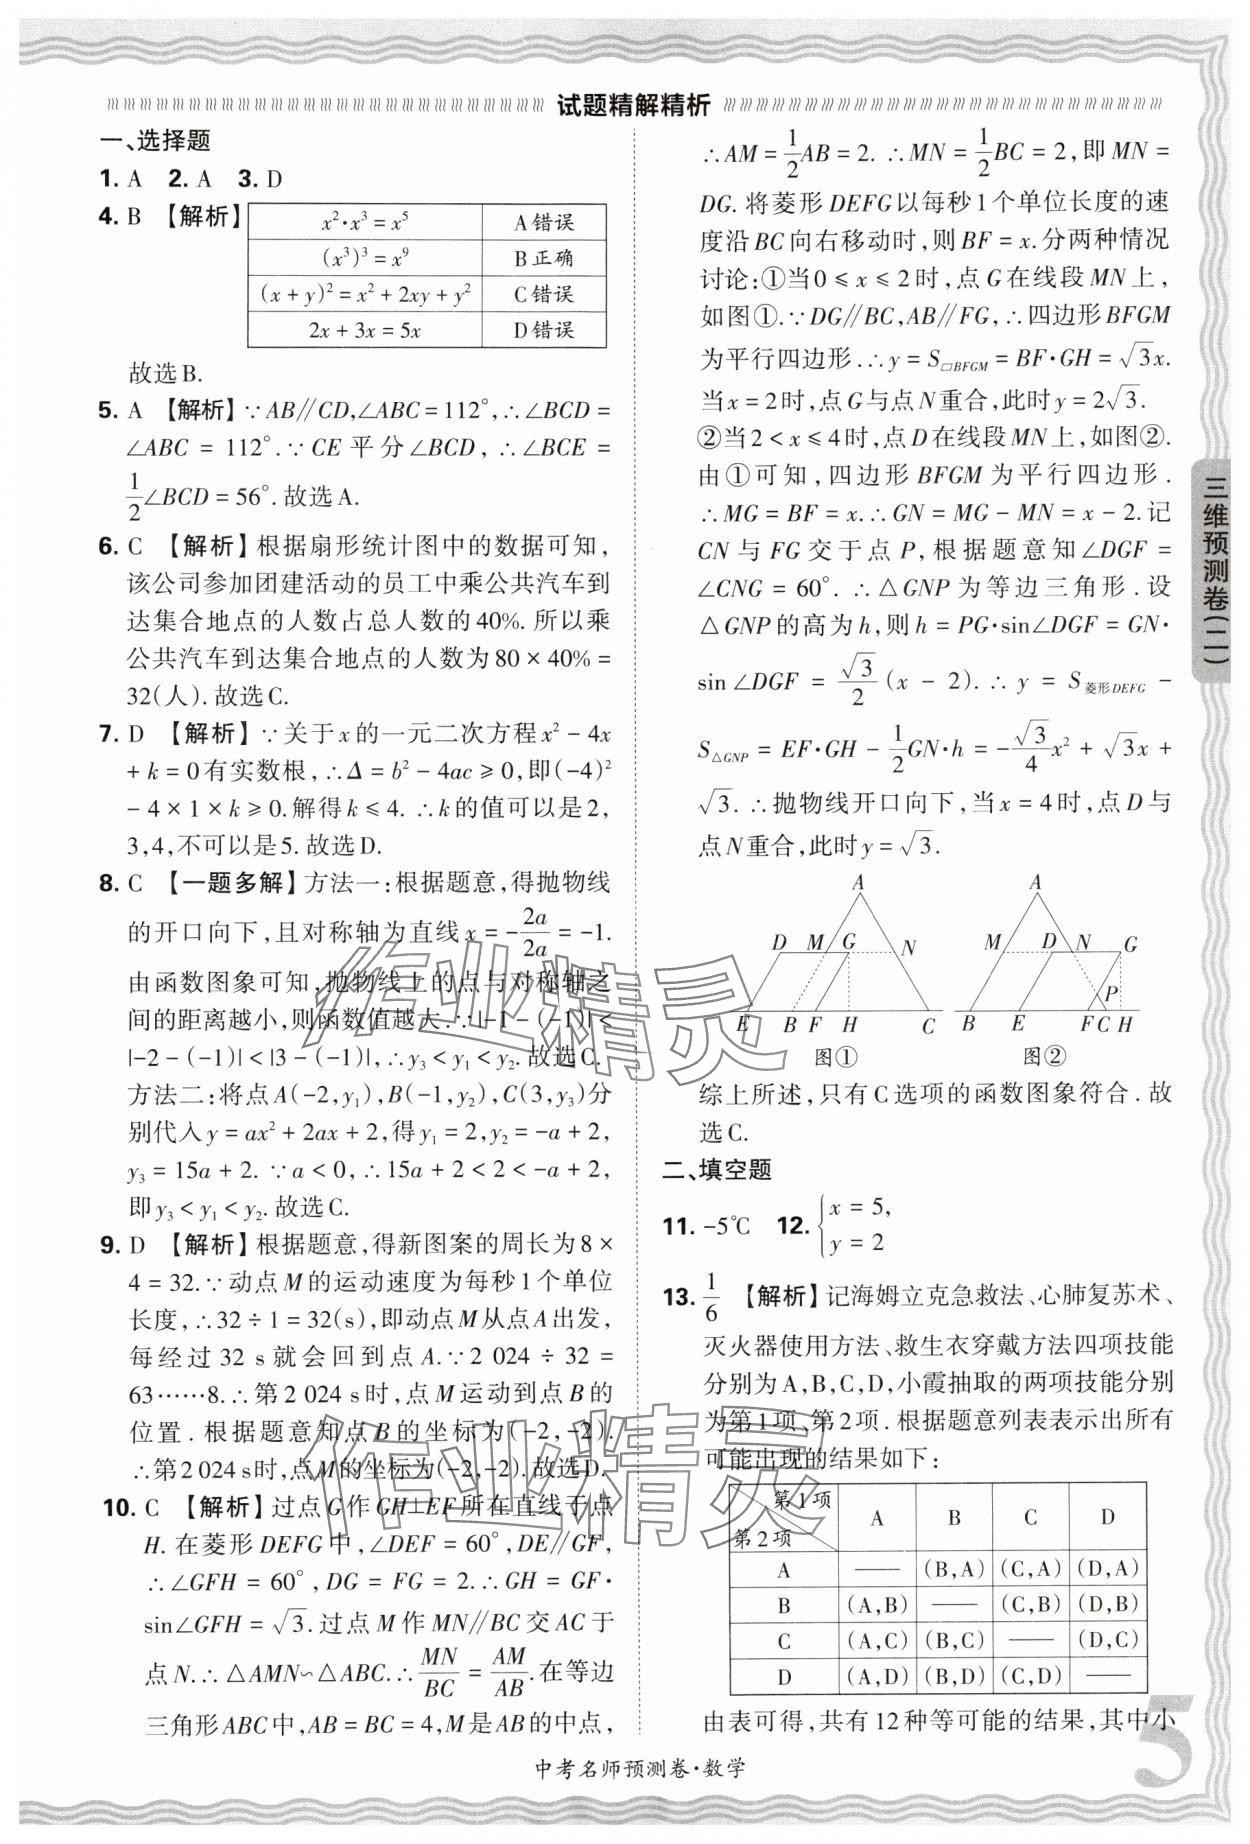 试题精解精析
一、选择题
1. A 2. A 3. D
4. B 【解析】
x²·x³=x⁵ A错误
(x³)³=x⁹ B正确
(x+y)²=x²+2xy+y² C错误
2x+3x=5x D错误
故选B.
5. A 【解析】∵AB∥CD,∠ABC=112°,∴∠BCD=
∠ABC=112°.∵CE平分∠BCD,∴∠BCE=
1/2∠BCD=56°.故选A.
6. C 【解析】根据扇形统计图中的数据可知,
该公司参加团建活动的员工中乘公共汽车到
达集合地点的人数占总人数的40%.所以乘
公共汽车到达集合地点的人数为80×40%=
32(人).故选C.
7. D 【解析】∵关于x的一元二次方程x²-4x
+k=0有实数根,∴Δ=b²-4ac≥0,即(-4)²
-4×1×k≥0.解得k≤4.∴k的值可以是2,
3,4,不可以是5.故选D.
8. C 【一题多解】方法一:根据题意,得抛物线
的开口向下,且对称轴为直线x=-2a/2a=-1.
由函数图象可知,抛物线上的点与对称轴之
间的距离越小,则函数值越大.∵|-1-(-1)|<
|-2-(-1)|<|3-(-1)|,∴y₃<y₁<y₂.故选C.
方法二:将点A(-2,y₁),B(-1,y₂),C(3,y₃)分
别代入y=ax²+2ax+2,得y₁=2,y₂=-a+2,
y₃=15a+2.∵a<0,∴15a+2<2<-a+2,
即y₃<y₁<y₂.故选C.
9. D 【解析】根据题意,得新图案的周长为8×
4=32.∵动点M的运动速度为每秒1个单位
长度,∴32÷1=32(s),即动点M从点A出发,
每经过32 s就会回到点A.∵2 024÷32=
63……8.∴第2 024 s时,点M运动到点B的
位置.根据题意知点B的坐标为(-2,-2).
∴第2 024 s时,点M的坐标为(-2,-2).故选D.
10. C 【解析】过点G作GH⊥EF所在直线于点
H.在菱形DEFG中,∠DEF=60°,DE∥GF,
∴∠GFH=60°,DG=FG=2.∴GH=GF·
sin∠GFH=√3.过点M作MN∥BC交AC于
点N.∴△AMN∽△ABC.∴MN/BC=AM/AB.在等边
三角形ABC中,AB=BC=4,M是AB的中点,
∴AM=1/2AB=2.∴MN=1/2BC=2,即MN=
DG.将菱形DEFG以每秒1个单位长度的速
度沿BC向右移动时,则BF=x.分两种情况
讨论:①当0≤x≤2时,点G在线段MN上,
如图①.∵DG∥BC,AB∥FG,∴四边形BFGM
为平行四边形.∴y=S□BFGM=BF·GH=√3x.
当x=2时,点G与点N重合,此时y=2√3.
②当2<x≤4时,点D在线段MN上,如图②.
由①可知,四边形BFGM为平行四边形.
∴MG=BF=x.∴GN=MG-MN=x-2.记
CN与FG交于点P,根据题意知∠DGF=
∠CNG=60°.∴△GNP为等边三角形.设
△GNP的高为h,则h=PG·sin∠DGF=GN·
sin∠DGF=√3/2(x-2).∴y=S菱形DEFG-
S△GNP=EF·GH-1/2GN·h=-√3/4x²+√3x+
√3.∴抛物线开口向下,当x=4时,点D与
点N重合,此时y=√3.
A
D M G N
E B F H C
图①
A
M D N G
P
B E F C H
图②
综上所述,只有C选项的函数图象符合.故
选C.
二、填空题
11. -5℃ 12. {x=5,
y=2
13. 1/6 【解析】记海姆立克急救法、心肺复苏术、
灭火器使用方法、救生衣穿戴方法四项技能
分别为A,B,C,D,小霞抽取的两项技能分别
为第1项、第2项.根据题意列表表示出所有
可能出现的结果如下:
第1项 第2项 A B C D
A —— (B,A) (C,A) (D,A)
B (A,B) —— (C,B) (D,B)
C (A,C) (B,C) —— (D,C)
D (A,D) (B,D) (C,D) ——
由表可得,共有12种等可能的结果,其中小
三维预测卷(二)
中考名师预测卷·数学
5
作业精灵
作业精灵